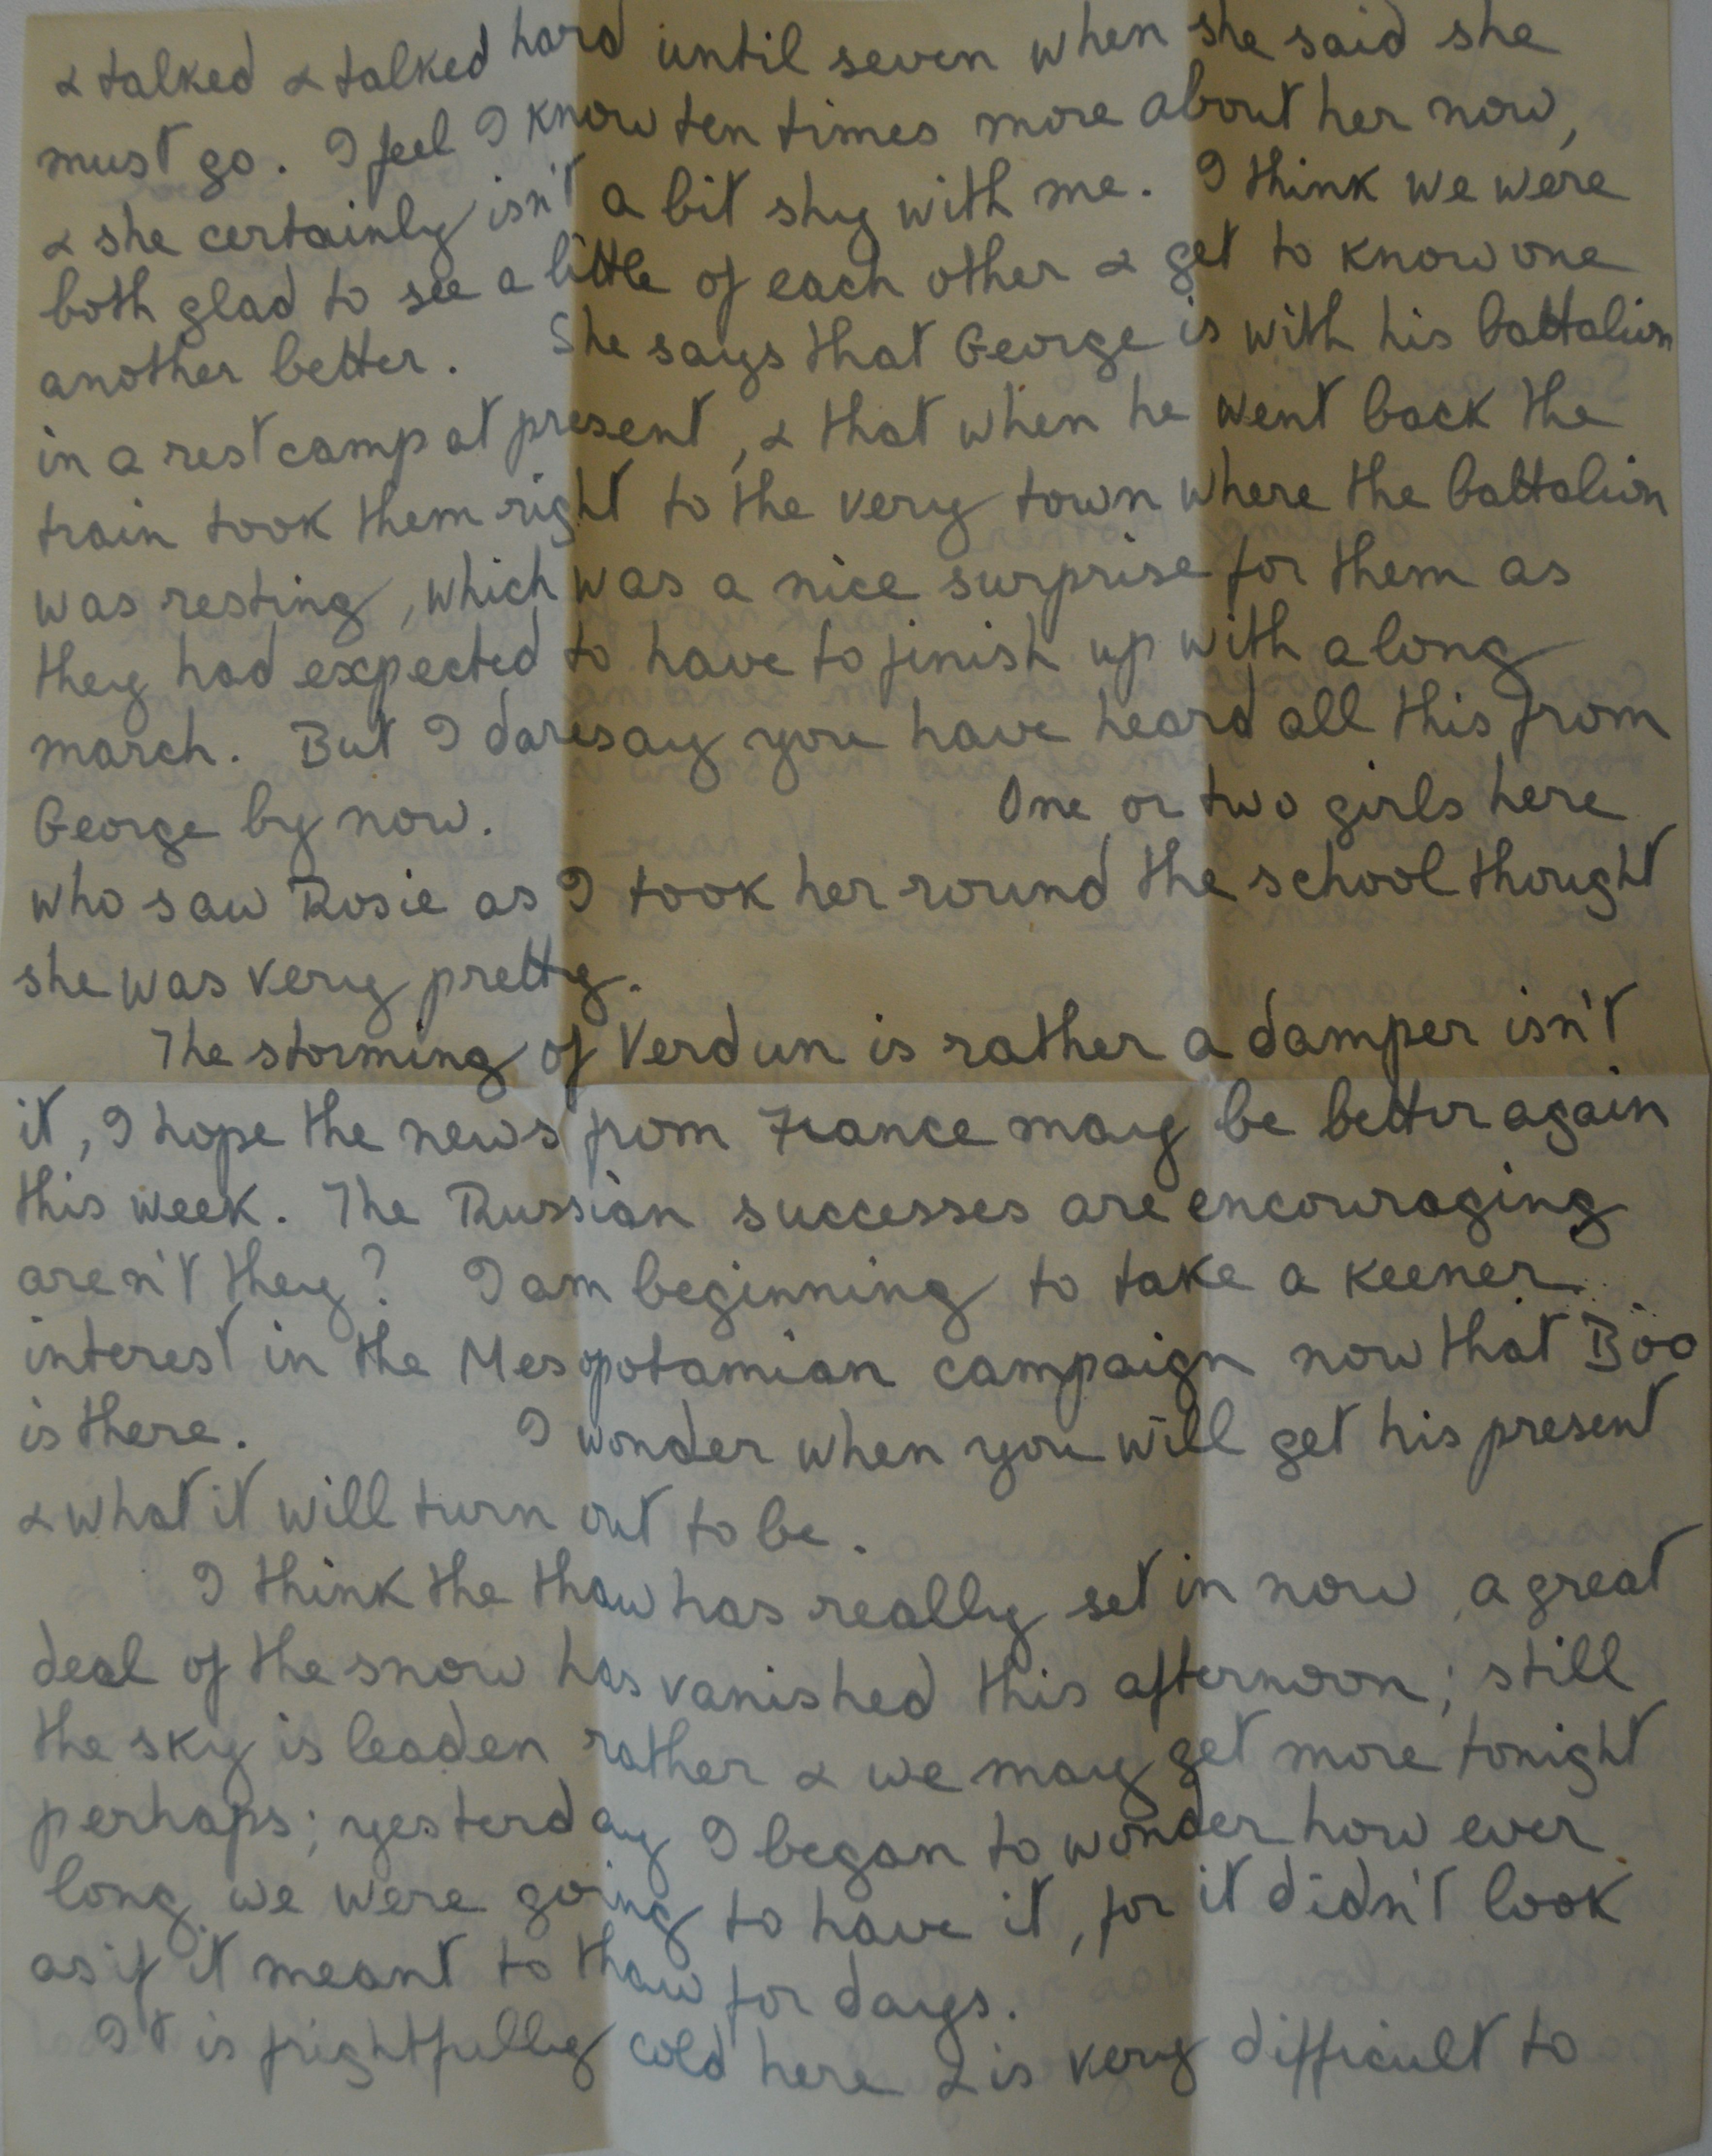 & talked & talked hard until seven when she said she
must go. I feel I know ten times more about her now,
& she certainly isn't a bit shy with me. I think we were
both glad to see a little of each other & get to know one
another better. She says that George is with his battalion
in a rest camp at present, & that when he went back the
train took them right to the very town where the battalion
was resting, which was a nice surprise for them as
they had expected to have to finish up with a long
march. But I daresay you have heard all this from
George by now. One or two girls here
who saw Rosie as I took her round the school thought
she was very pretty.
The storming of Verdun is rather a damper isn't
it, I hope the news from France may be better again
this week. The Russian successes are encouraging
aren't they? I am beginning to take a keener
interest in the Mesopotamian campaign now that Böo
is there. I wonder when you will get his present
& what it will turn out to be.
I think the thaw has really set in now, a great
deal of the snow has vanished this afternoon; still
the sky is leaden rather & we may get more tonight
perhaps; yesterday I began to wonder how ever
long we were going to have it, for it didn't look
as if it meant to thaw for days.
It is frightfully cold here & is very difficult to